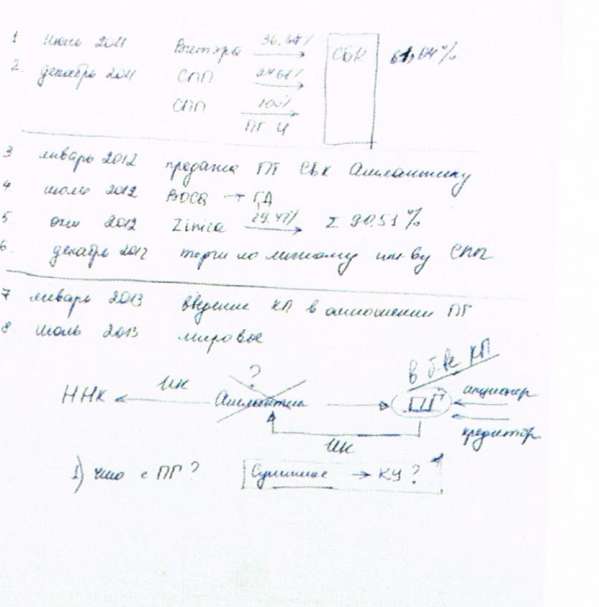 1 июнь 2011 Виктэра 36.68% → СБК 61,04%
2. декабрь 2011 СПП →
СПП 100% →
ПГ И
3 январь 2012 продажа ПГ СБК Атлантику
4 июль 2012 ВОСА → ГД
5 2012 Zinica 29.47% → Σ 90.51%
6. декабрь 2012 торги по личному им-ву СПП
7 январь 2013 введение КП в отношении ПГ
8 июль 2013 мировое
? в б-ве КП
ННК ← ИК Атлантик → ПГ ← акционер
← кредитор
ИК
1) что с ПГ? → КУ?